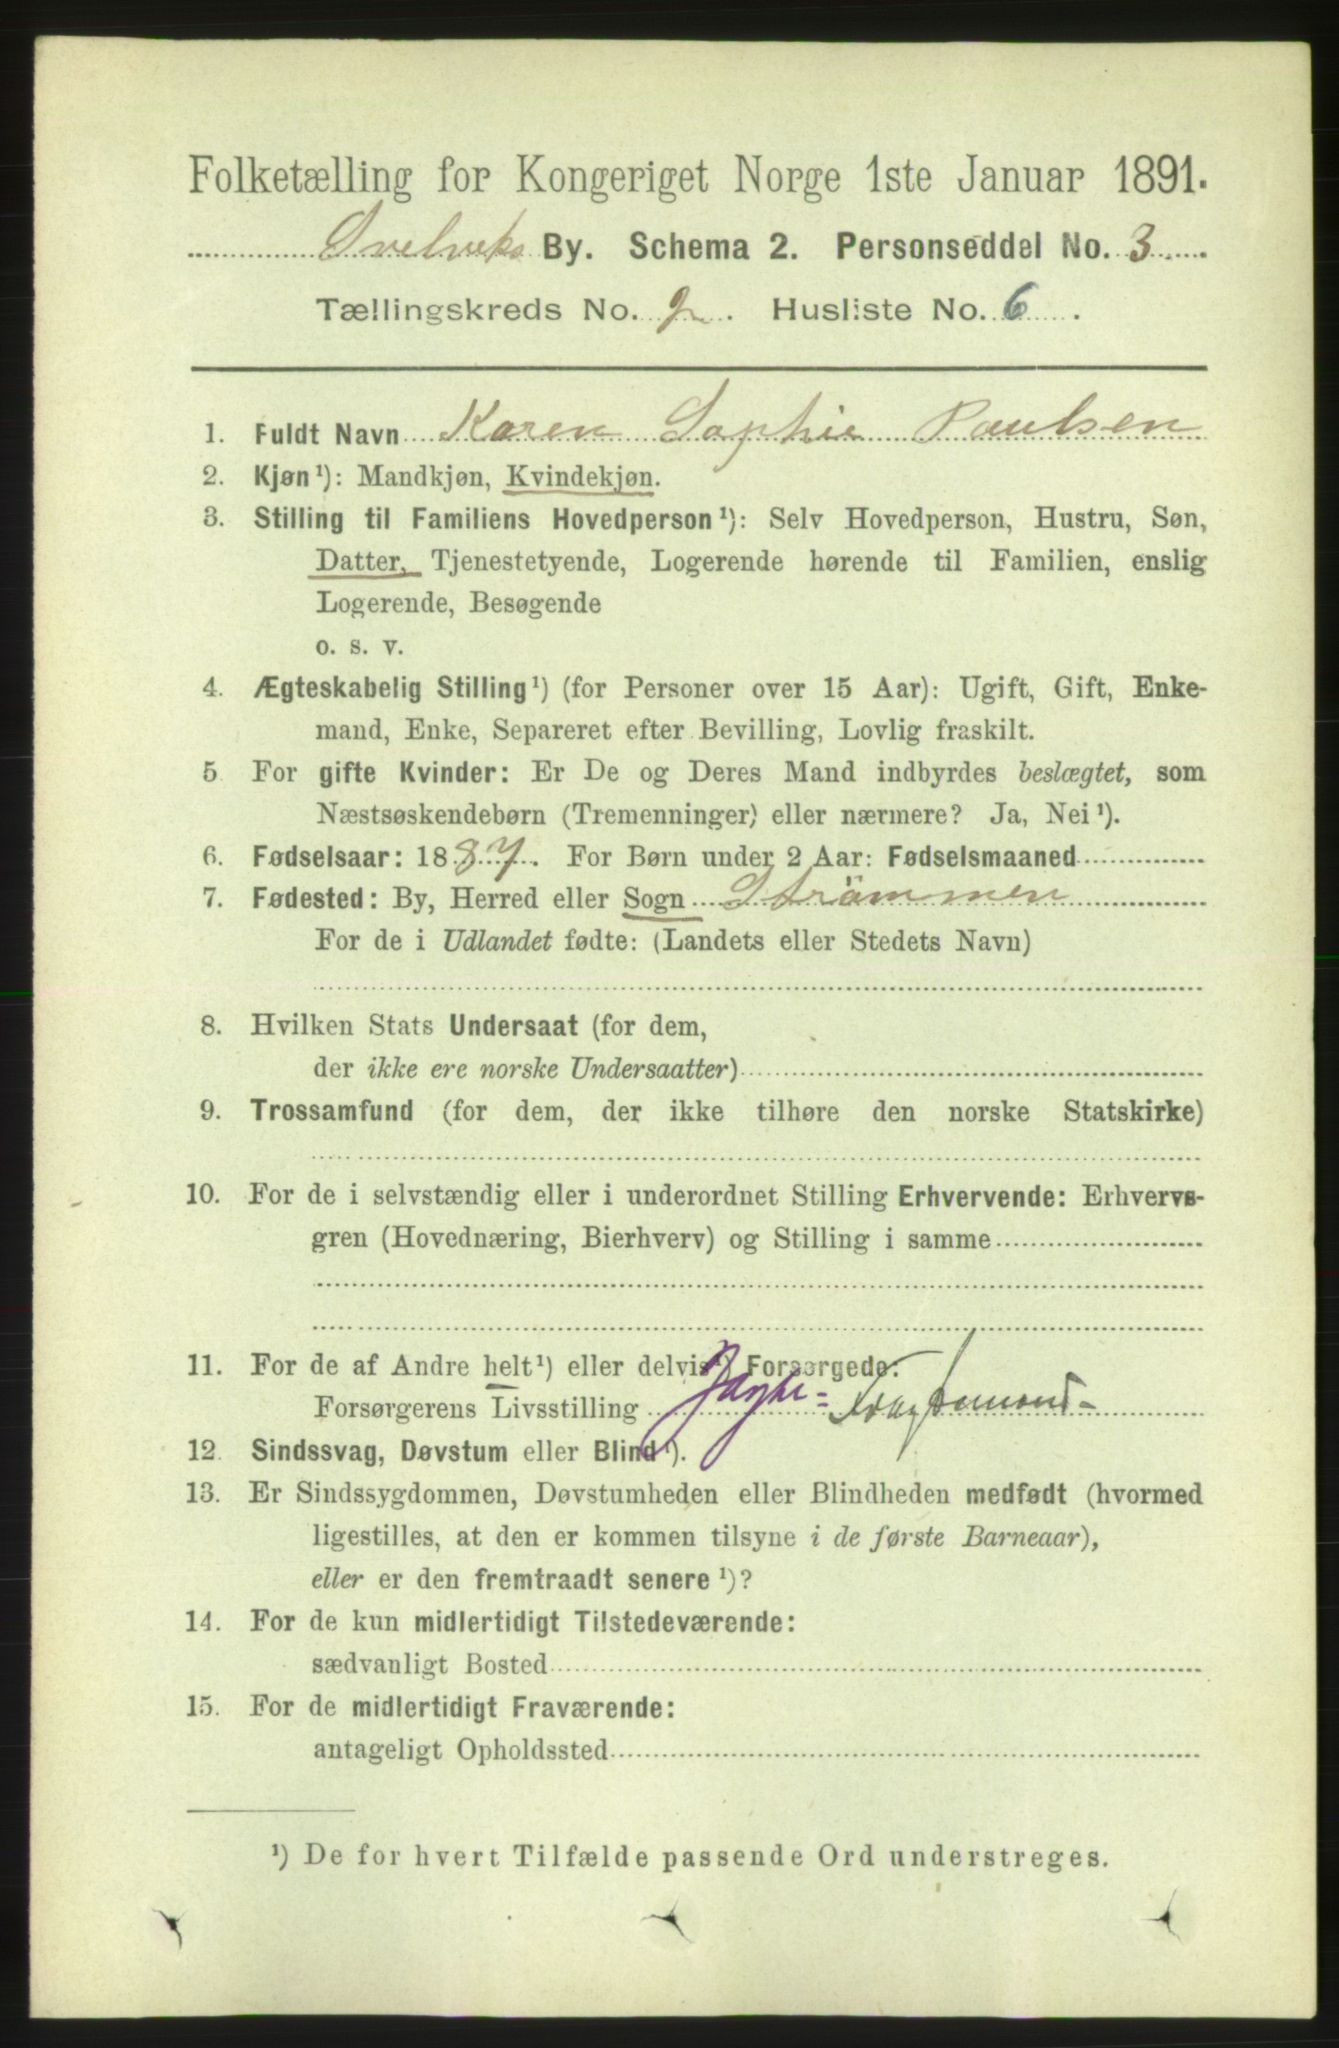 Folketælling for Kongeriget Norge 1ste Januar 1891.
Svelviks By. Schema 2. Personseddel No. 3
Tællingskreds No. 2. Husliste No. 6.
1. Fuldt Navn Karen Sophie Paulsen
2. Kjøn¹): Mandkjøn, Kvindekjøn.
3. Stilling til Familiens Hovedperson¹): Selv Hovedperson, Hustru, Søn,
Datter, Tjenestetyende, Logerende hørende til Familien, enslig
Logerende, Besøgende
o. s. v.
4. Ægteskabelig Stilling¹) (for Personer over 15 Aar): Ugift, Gift, Enke-
mand, Enke, Separeret efter Bevilling, Lovlig fraskilt.
5 For gifte Kvinder: Er De og Deres Mand indbyrdes beslægtet, som
Næstsøskendebørn (Tremenninger) eller nærmere? Ja, Nei¹).
6. Fødselsaar: 1887. For Børn under 2 Aar: Fødselsmaaned
7. Fødested: By, Herred eller Sogn Strömmen
For de i Udlandet fødte: (Landets eller Stedets Navn)
8. Hvilken Stats Undersaat (for dem,
der ikke ere norske Undersaatter)
9. Trossamfund (for dem, der ikke tilhøre den norske Statskirke)
10. For de i selvstændig eller i underordnet Stilling Erhvervende: Erhvervs-
gren (Hovednæring, Bierhverv) og Stilling i samme
11. For de af Andre helt¹) eller delvis¹) Forsørgede:
Forsørgerens Livsstilling
12. Sindssvag, Døvstum eller Blind¹).
13. Er Sindssygdommen, Døvstumheden eller Blindheden medfødt (hvormed
ligestilles, at den er kommen tilsyne i de første Barneaar),
eller er den fremtraadt senere¹)?
14. For de kun midlertidigt Tilstedeværende:
sædvanligt Bosted
15. For de midlertidigt Fraværende:
antageligt Opholdssted
¹) De for hvert Tilfælde passende Ord understreges.